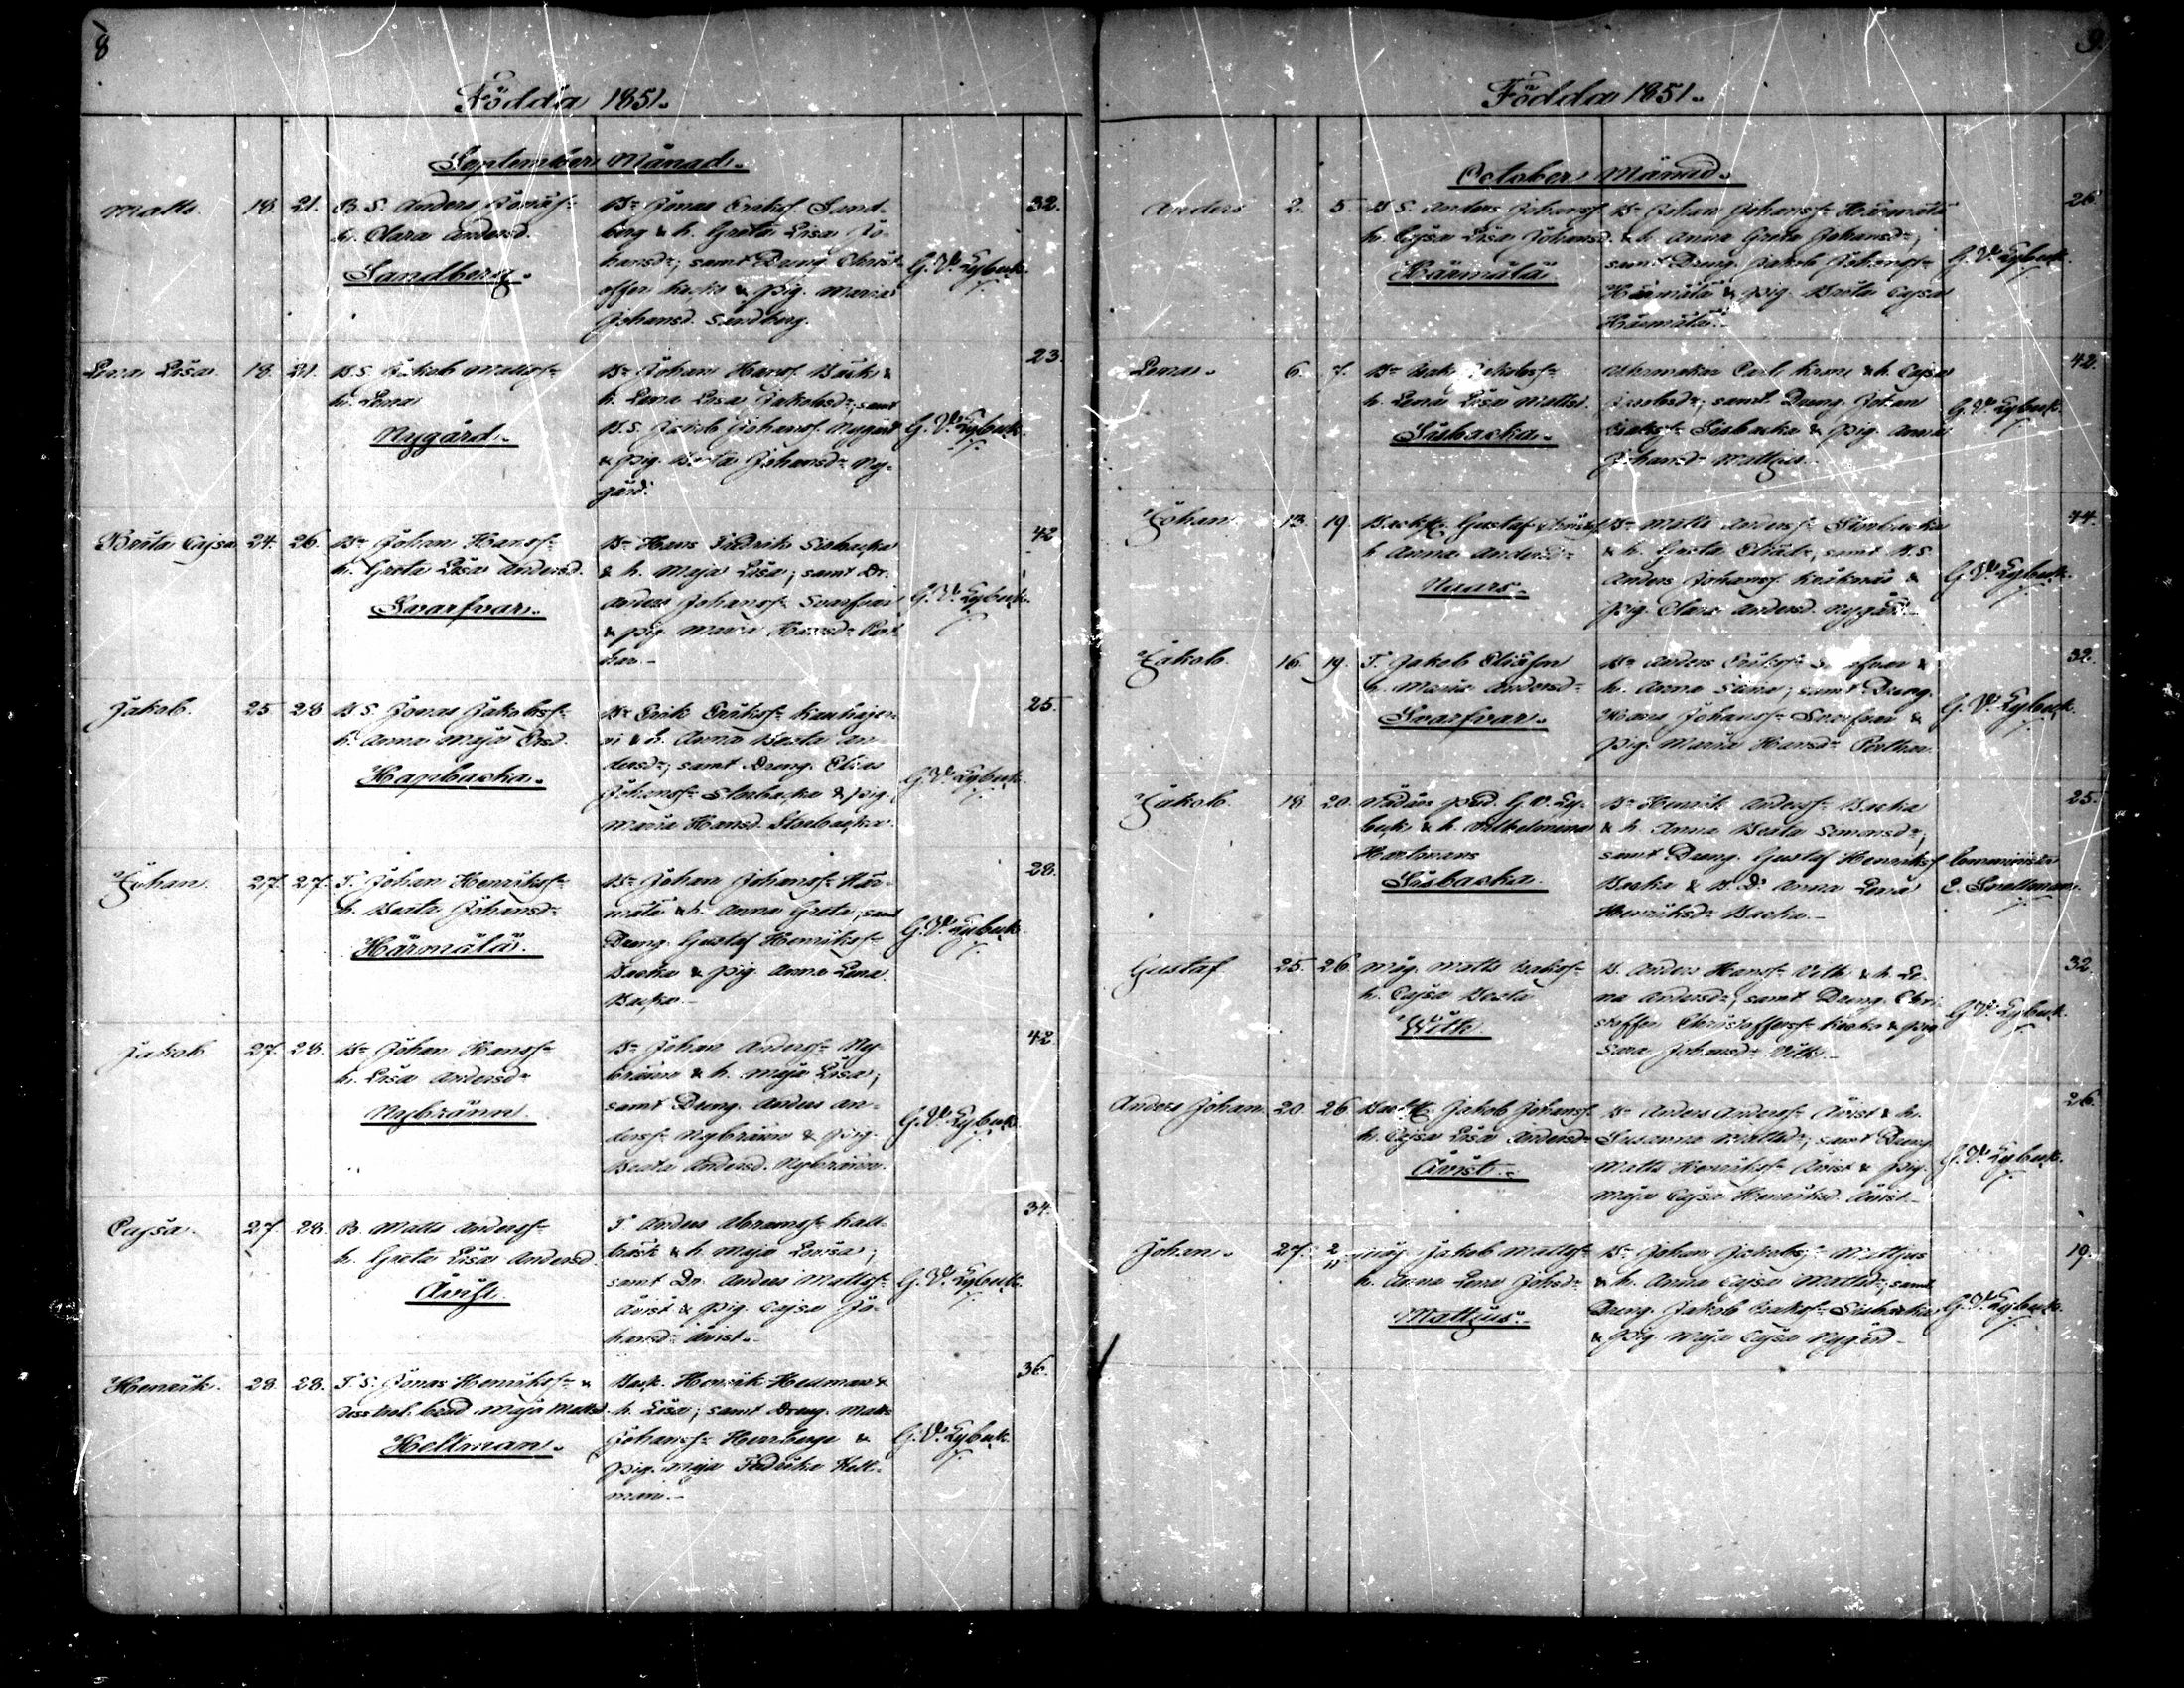 8
Födda 1851.
September Månad.
Matts. 18. 21. B. S. Anders
h. Clara Andersd.
Sandberg.
Bn Jonas Eriksf. Sand-
berg & h. Greta Lisa Jo-
hansdr; samt Dreng. Christ-
offer & Pig. Maria
Johansd. Sandberg.
G. W. Lybeck.
32.
Lena Lisa 18. 21. B S. Jakob Mattsf
h. Lena
Nygård.
Bn Johan Hansf. Back &
h. Lena Lisa Jakobsdr; samt
B. S. Jakob Johansf. Nygård
& Pig. Johansdr Ny-
gård.
G. W. Lybeck.
23.
Brita Cajsa 24. 26. Bn Johan Hansf
h. Greta Lisa Andersd.
Svarfvar.
Bn Hans Fredrik Sisbacka
& h. Maja Lisa; samt Dr.
Anders Johansf Svarfvar
& pig. Maria Hansdr Pert-
G. W. Lybeck.
42
Jakob. 25 28 B S. Jonas Jakobsf
h. Anna Maja Ersd.
Hapbacka.
Bn Erik Eriksf Kauhajer-
vi & h. Anna Beata An-
dersdr; samt Dreng. Elias
Johansf Storbacka & pig.
Maria Hansd. Storbacka.
G. W. Lybeck.
25.
Johan. 27. 27. T. Johan Henriksf
h. Beata Johansdr
Härmälä.
Bn Johan Johansf Här-
mälä & h. Anna Greta, samt
Dreng. Gustaf Henriksf
Backa & Pig. Anna Lena
Backa.
G. W. Lybeck.
28.
Jakob 27. 28. Bn Johan Hansf
h. Lisa Andersdr
Nybränn
Bn Johan Andersf Ny-
bränn & h. Maja Lisa;
samt Dreng. Anders An-
dersf Nybränn & Pig.
Beata Andersd. Nybränn.
G. W. Lybeck.
42
Cajsa. 27. 28. B. Matts Andersf
h. Greta Lisa Andersd
Åvist.
T. Anders Abramsf Katt-
båsk & h. Maja Lovisa;
samt Dr. Anders Mattsf
Åvist & Pig. Cajsa Jo-
hansdr Åvist.
G. W. Lybeck.
34.
Henrik. 28. 28. T. S. Jonas Henriksf &
Maja Mattsd.
Hellman.
Back. Henrik &
h. Lisa; samt Dreng. Matts
Johansf &
Pig. Maja Fredrika Hell-
man.
G. W. Lybeck.
36.
9.
Födda 1851.
October Månad.
Anders 2. 5. B S. Anders Johansf
h. Cajsa Lisa Johansd.
Härmälä.
Bn Johan Johansf Härmälä
& h. Anna Greta Johansdr;
samt Dreng. Jakob Johansf
Härmälä & Pig. Brita Cajsa
Härmälä.
G. W. Lybeck.
26.
Lena. 6. 7. Bn Isak Jakobsf
h. Lena Lisa Mattsd.
Sisbacka.
Carl & h. Cajsa
samt Dreng. Johan
Isaksf Sisbacka & Pig. Anna
Johansdr Mattjus.
G. W. Lybeck.
42.
Johan 13. 19. Gustaf
h. Anna Andersdr
Naars.
Bn Matts Andersf Sisbacka
& h. Greta samt B. S.
Anders Johansf &
Pig. Clara Andersd. Nygård.
G. W. Lybeck.
44.
Jakob. 16. 19. T. Jakob Eliasson
h. Maria Andersdr
Svarfvar.
Bn Anders Eriksf &
h. Anna Stina; samt Dreng.
Hans Johansf Svarfvar &
Pig. Maria Hansdr
G. W. Lybeck.
32.
Jakob. 18. 20. G. W. Ly-
beck & h. Vilhelmina
Hartman
Sisbacka.
Bn Henrik Andersf Backa
& h. Anna Beata Simonsdr;
samt Dreng. Gustaf Henriksf
Backa & Anna Lena
Henriksdr Backa.
Comminister
E. Snellman.
25.
Gustaf 25. 26 Måg. Matts Isaksf
h. Cajsa Beata
With.
B. Anders Hansf With & h. Le-
na Andersdr; samt Dreng. Chri-
stoffer Christoffersf & Pig
Sara Johansdr With.
G. W. Lybeck.
32
Anders Johan. 20. 26 Jakob Johansf
h. Cajsa Lisa Andersdr
Åvist.
Bn Anders Andersf Åvist & h.
Susanna Mattsdr; samt Dreng.
Matts Henriksf Åvist & Pig.
Maja Cajsa Henriksd. Åvist.
G. W. Lybeck.
26.
Johan. 27. 2/11 Måg Jakob Mattsf
h. Anna Lena Johsdr
Mattjus.
Bn Johan Jakobsf Mattjus
& h. Anna Cajsa Mattsdr; samt
Dreng. Jakob Isaksf Sisbacka
& Pig. Maja Cajsa Nygård.
G. W. Lybeck.
19.